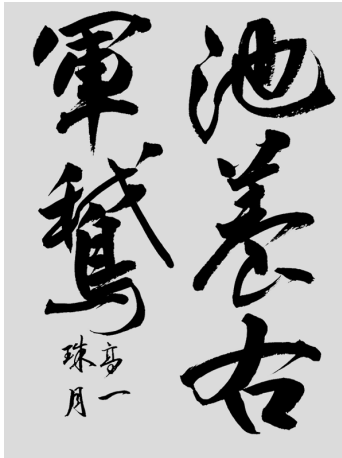 池養右
軍鵝
高一
珠月